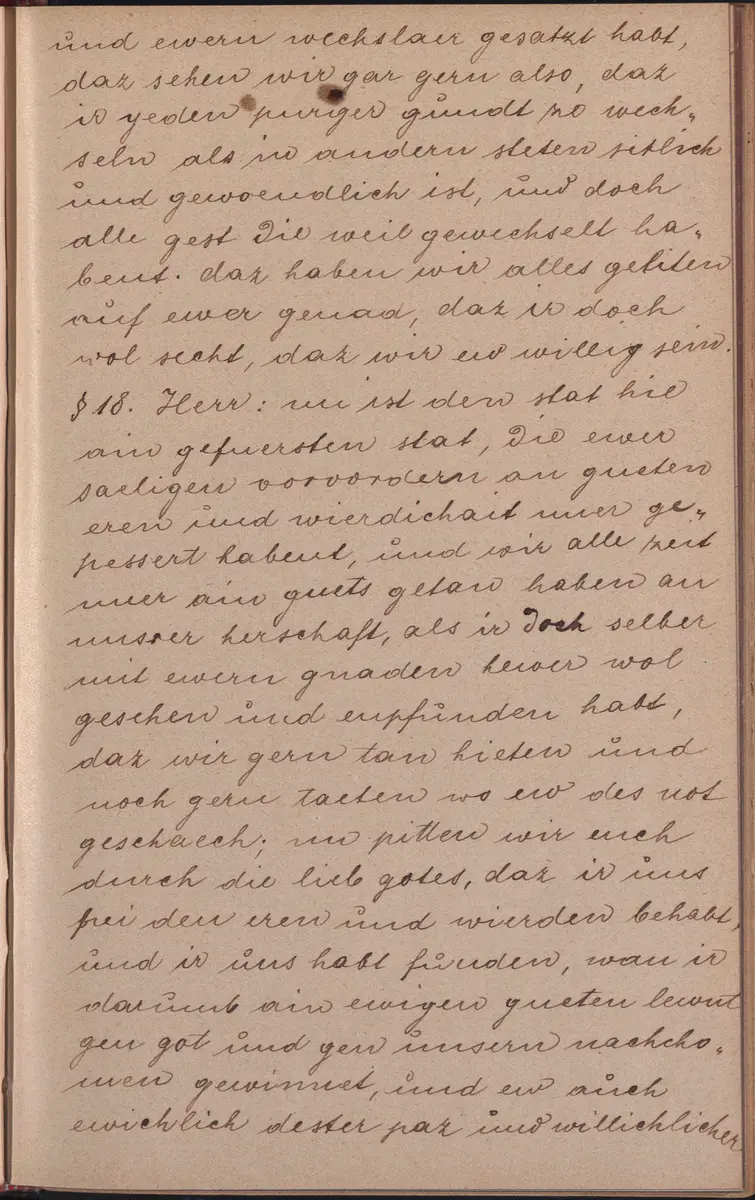 und ewern wechslaer gesatzt habt,
daz sehen wir gar gern also, daz
ir yeden purger gundt ze wech„
seln als in andern steten sitlich
und gewoendlich ist, und doch
alle gest die weil gewechselt ha„
bent. daz haben wir alles geliten
auf ewer genad, daz ir doch
wol secht, daz wir ew willig sein.
§ 18. Herr: nu ist den stat hie
ain gefuersten stat, die ewer
saeligen vorvordern an gueten
eren und wierdichait nuer ge„
pessert habent, und wir alle zeit
nuer ain guets getan haben an
unsrer herschaft, als ir doch selber
mit ewern gnaden hewer wol
gesehen und enpfunden habt,
daz wir gern tan hieten und
noch gern taeten wo ew des not
geschaech; nu pitten wir euch
durch die lieb gotes, daz ir uns
pei den eren und wierden behabt,
und ir uns habt funden, wan ir
darumb ain ewigen gueten lewnt
gen got und gen unsern nachcho„
men gewinnet, und ew auch
ewichlich dester paz und willichlicher